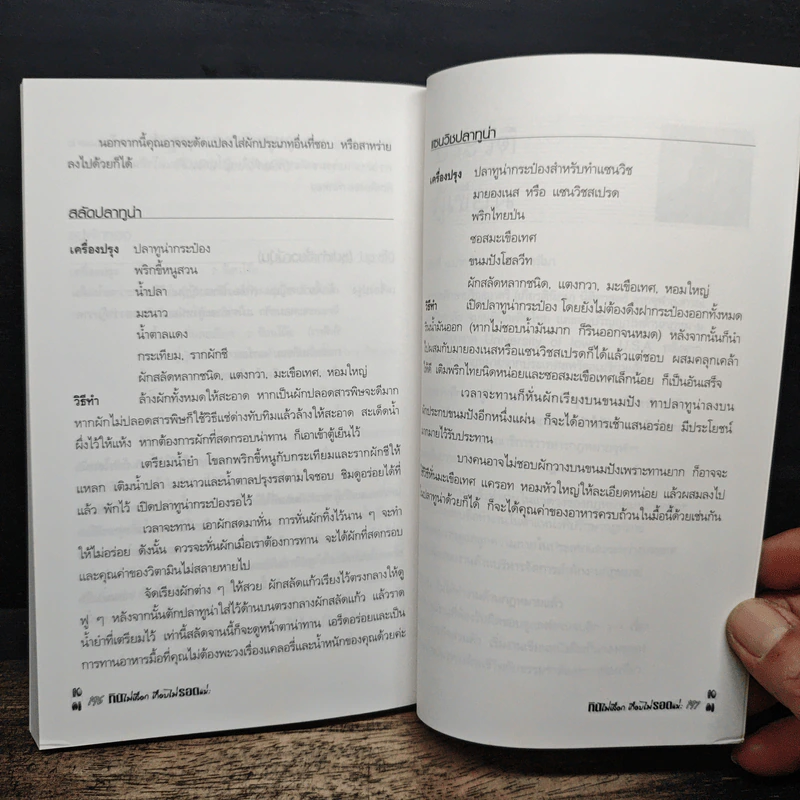 นอกจากนี้คุณอาจจะดัดแปลงใส่ผักประเภทอื่นที่ชอบ หรือสาหร่าย
ลงไปด้วยก็ได้
สลัดปลาทูน่า
เครื่องปรุง ปลาทูน่ากระป๋อง
พริกขี้หนูสวน
น้ำปลา
มะนาว
น้ำตาลแดง
กระเทียม, รากผักชี
ผักสลัดหลากชนิด, แตงกวา, มะเขือเทศ, หอมใหญ่
วิธีทำ ล้างผักทั้งหมดให้สะอาด หากเป็นผักปลอดสารพิษจะดีมาก
หากผักไม่ปลอดสารพิษก็ใช้วิธีแช่ด่างทับทิมแล้วล้างให้สะอาด สะเด็ดน้ำ
ผึ่งไว้ให้แห้ง หากต้องการผักที่สดกรอบน่าทาน ก็เอาเข้าตู้เย็นไว้
เตรียมน้ำยำ โขลกพริกขี้หนูกับกระเทียมและรากผักชีให้
แหลก เติมน้ำปลา มะนาวและน้ำตาลปรุงรสตามใจชอบ ชิมดูอร่อยได้ที่
แล้ว พักไว้ เปิดปลาทูน่ากระป๋องรอไว้
เวลาจะทาน เอาผักสดมาหั่น การหั่นผักทิ้งไว้นาน ๆ จะทำ
ให้ไม่อร่อย ดังนั้น ควรจะหั่นผักเมื่อเราต้องการทาน จะได้ผักที่สดกรอบ
และคุณค่าของวิตามินไม่สลายหายไป
จัดเรียงผักต่าง ๆ ให้สวย ผักสลัดแก้วเรียงไว้ตรงกลางให้ดู
ฟู ๆ หลังจากนั้นตักปลาทูน่าใส่ไว้ด้านบนตรงกลางผักสลัดแก้ว แล้วราด
น้ำยำที่เตรียมไว้ เท่านี้สลัดจานนี้ก็จะดูหน้าตาน่าทาน เอร็ดอร่อยและเป็น
การทานอาหารมื้อที่คุณไม่ต้องพะวงเรื่องแคลอรี่และน้ำหนักของคุณด้วยค่ะ
196
แซนวิชปลาทูน่า
เครื่องปรุง ปลาทูน่ากระป๋องสำหรับทำแซนวิช
มายองเนส หรือ แซนวิชสเปรด
พริกไทยป่น
ซอสมะเขือเทศ
ขนมปังโฮลวีท
ผักสลัดหลากชนิด, แตงกวา, มะเขือเทศ, หอมใหญ่
วิธีทำ เปิดปลาทูน่ากระป๋อง โดยยังไม่ต้องดึงฝากระป๋องออกทั้งหมด
น้ำมันออก (หากไม่ชอบน้ำมันมาก ก็รินออกจนหมด) หลังจากนั้นก็นำ
ไปผสมกับมายองเนสหรือแซนวิชสเปรดก็ได้แล้วแต่ชอบ ผสมคลุกเคล้า
ให้ดี เติมพริกไทยนิดหน่อยและซอสมะเขือเทศเล็กน้อย ก็เป็นอันเสร็จ
เวลาจะทานก็หั่นผักเรียงบนขนมปัง ทาปลาทูน่าลงบน
ประกบขนมปังอีกหนึ่งแผ่น ก็จะได้อาหารเช้าแสนอร่อย มีประโยชน์
ไว้รับประทาน
บางคนอาจไม่ชอบผักวางบนขนมปังเพราะทานยาก ก็อาจจะ
หั่นมะเขือเทศ แครอท หอมหัวใหญ่ให้ละเอียดหน่อย แล้วผสมลงไป
ปลาทูน่าด้วยก็ได้ ก็จะได้คุณค่าของอาหารครบถ้วนในมื้อนี้ด้วยเช่นกัน
197